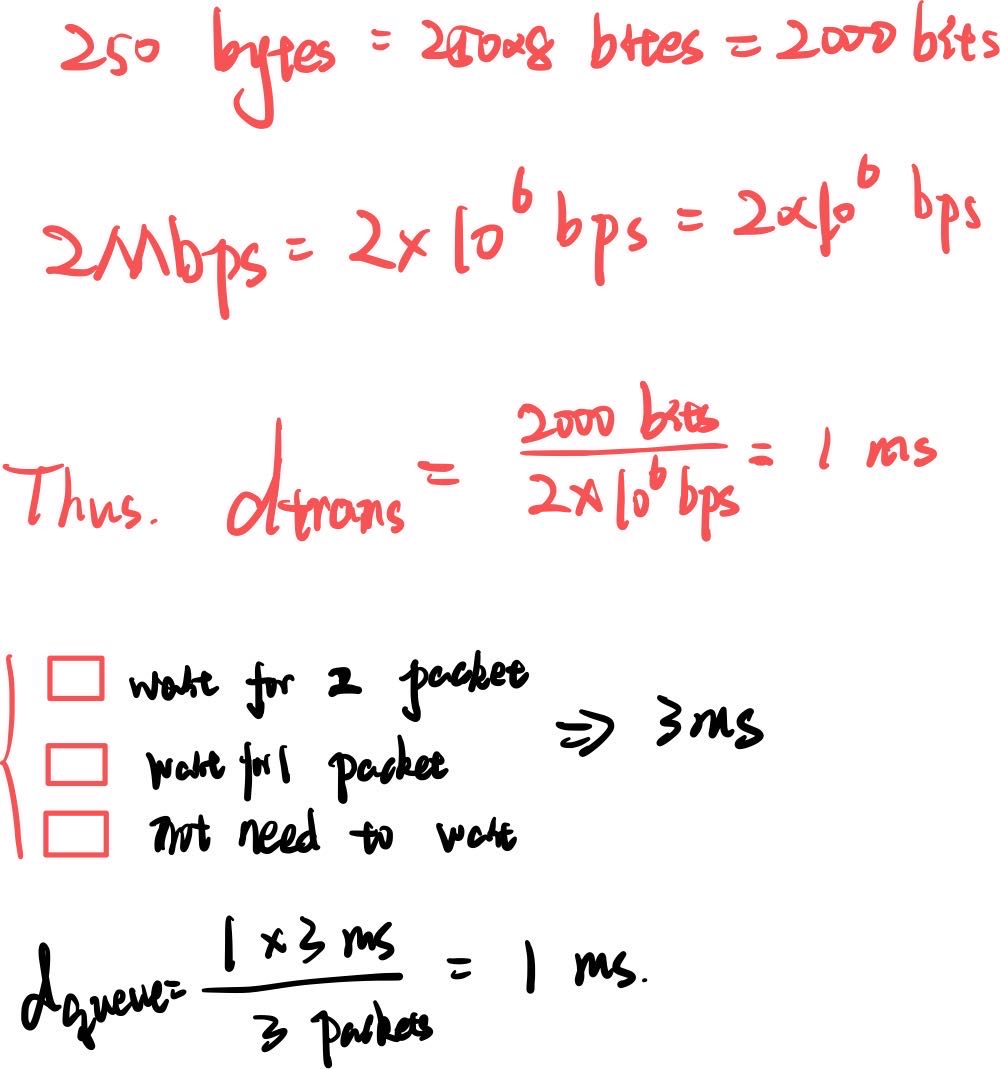 250 bytes = 250×8 bites = 2000 bits
2Mbps = 2×10⁶ bps = 2×10⁶ bps
Thus. dtrans = 2000 bits / 2×10⁶ bps = 1 ms
wait for 2 packet
wait for 1 packet ⇒ 3ms
not need to wait
dqueue = 1×3 ms / 3 packets = 1 ms.